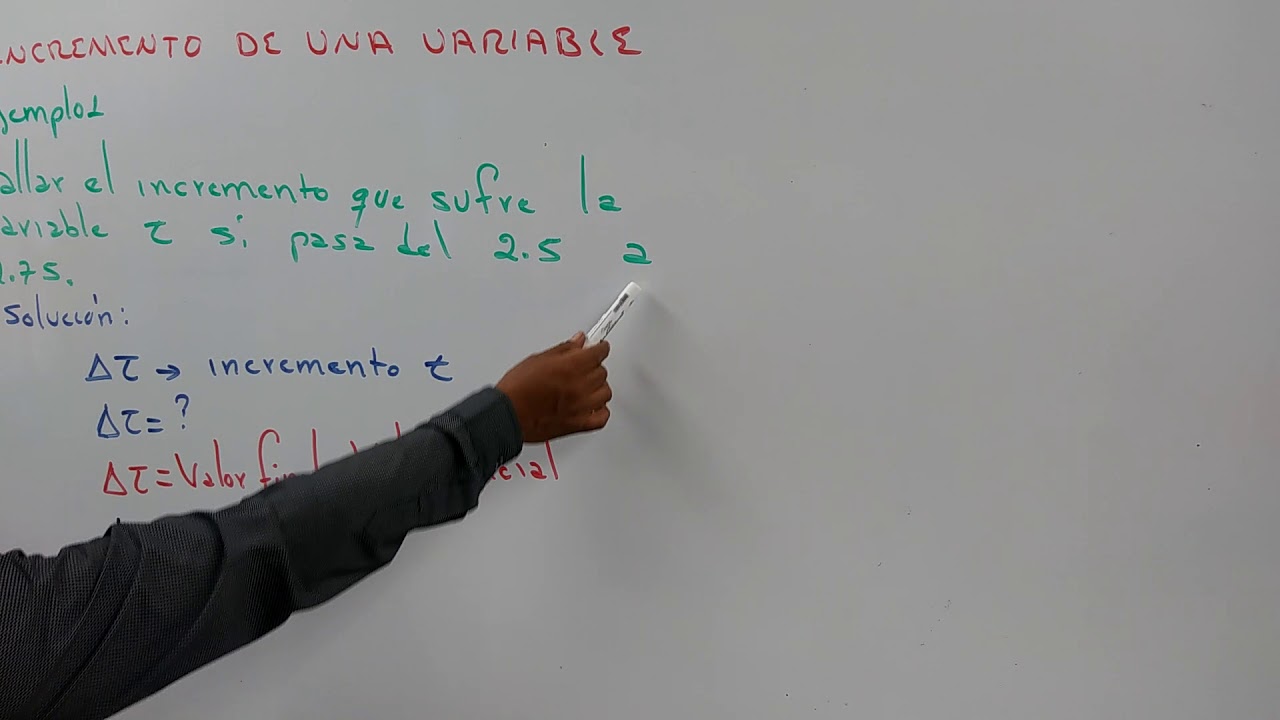 INCREMENTO DE UNA VARIABLE
jemplo1
allar el incremento que sufre la
ariable τ si pasa del 2.5 a
2.75.
Solución:
Δτ → incremento τ
Δτ = ?
Δτ = Valor